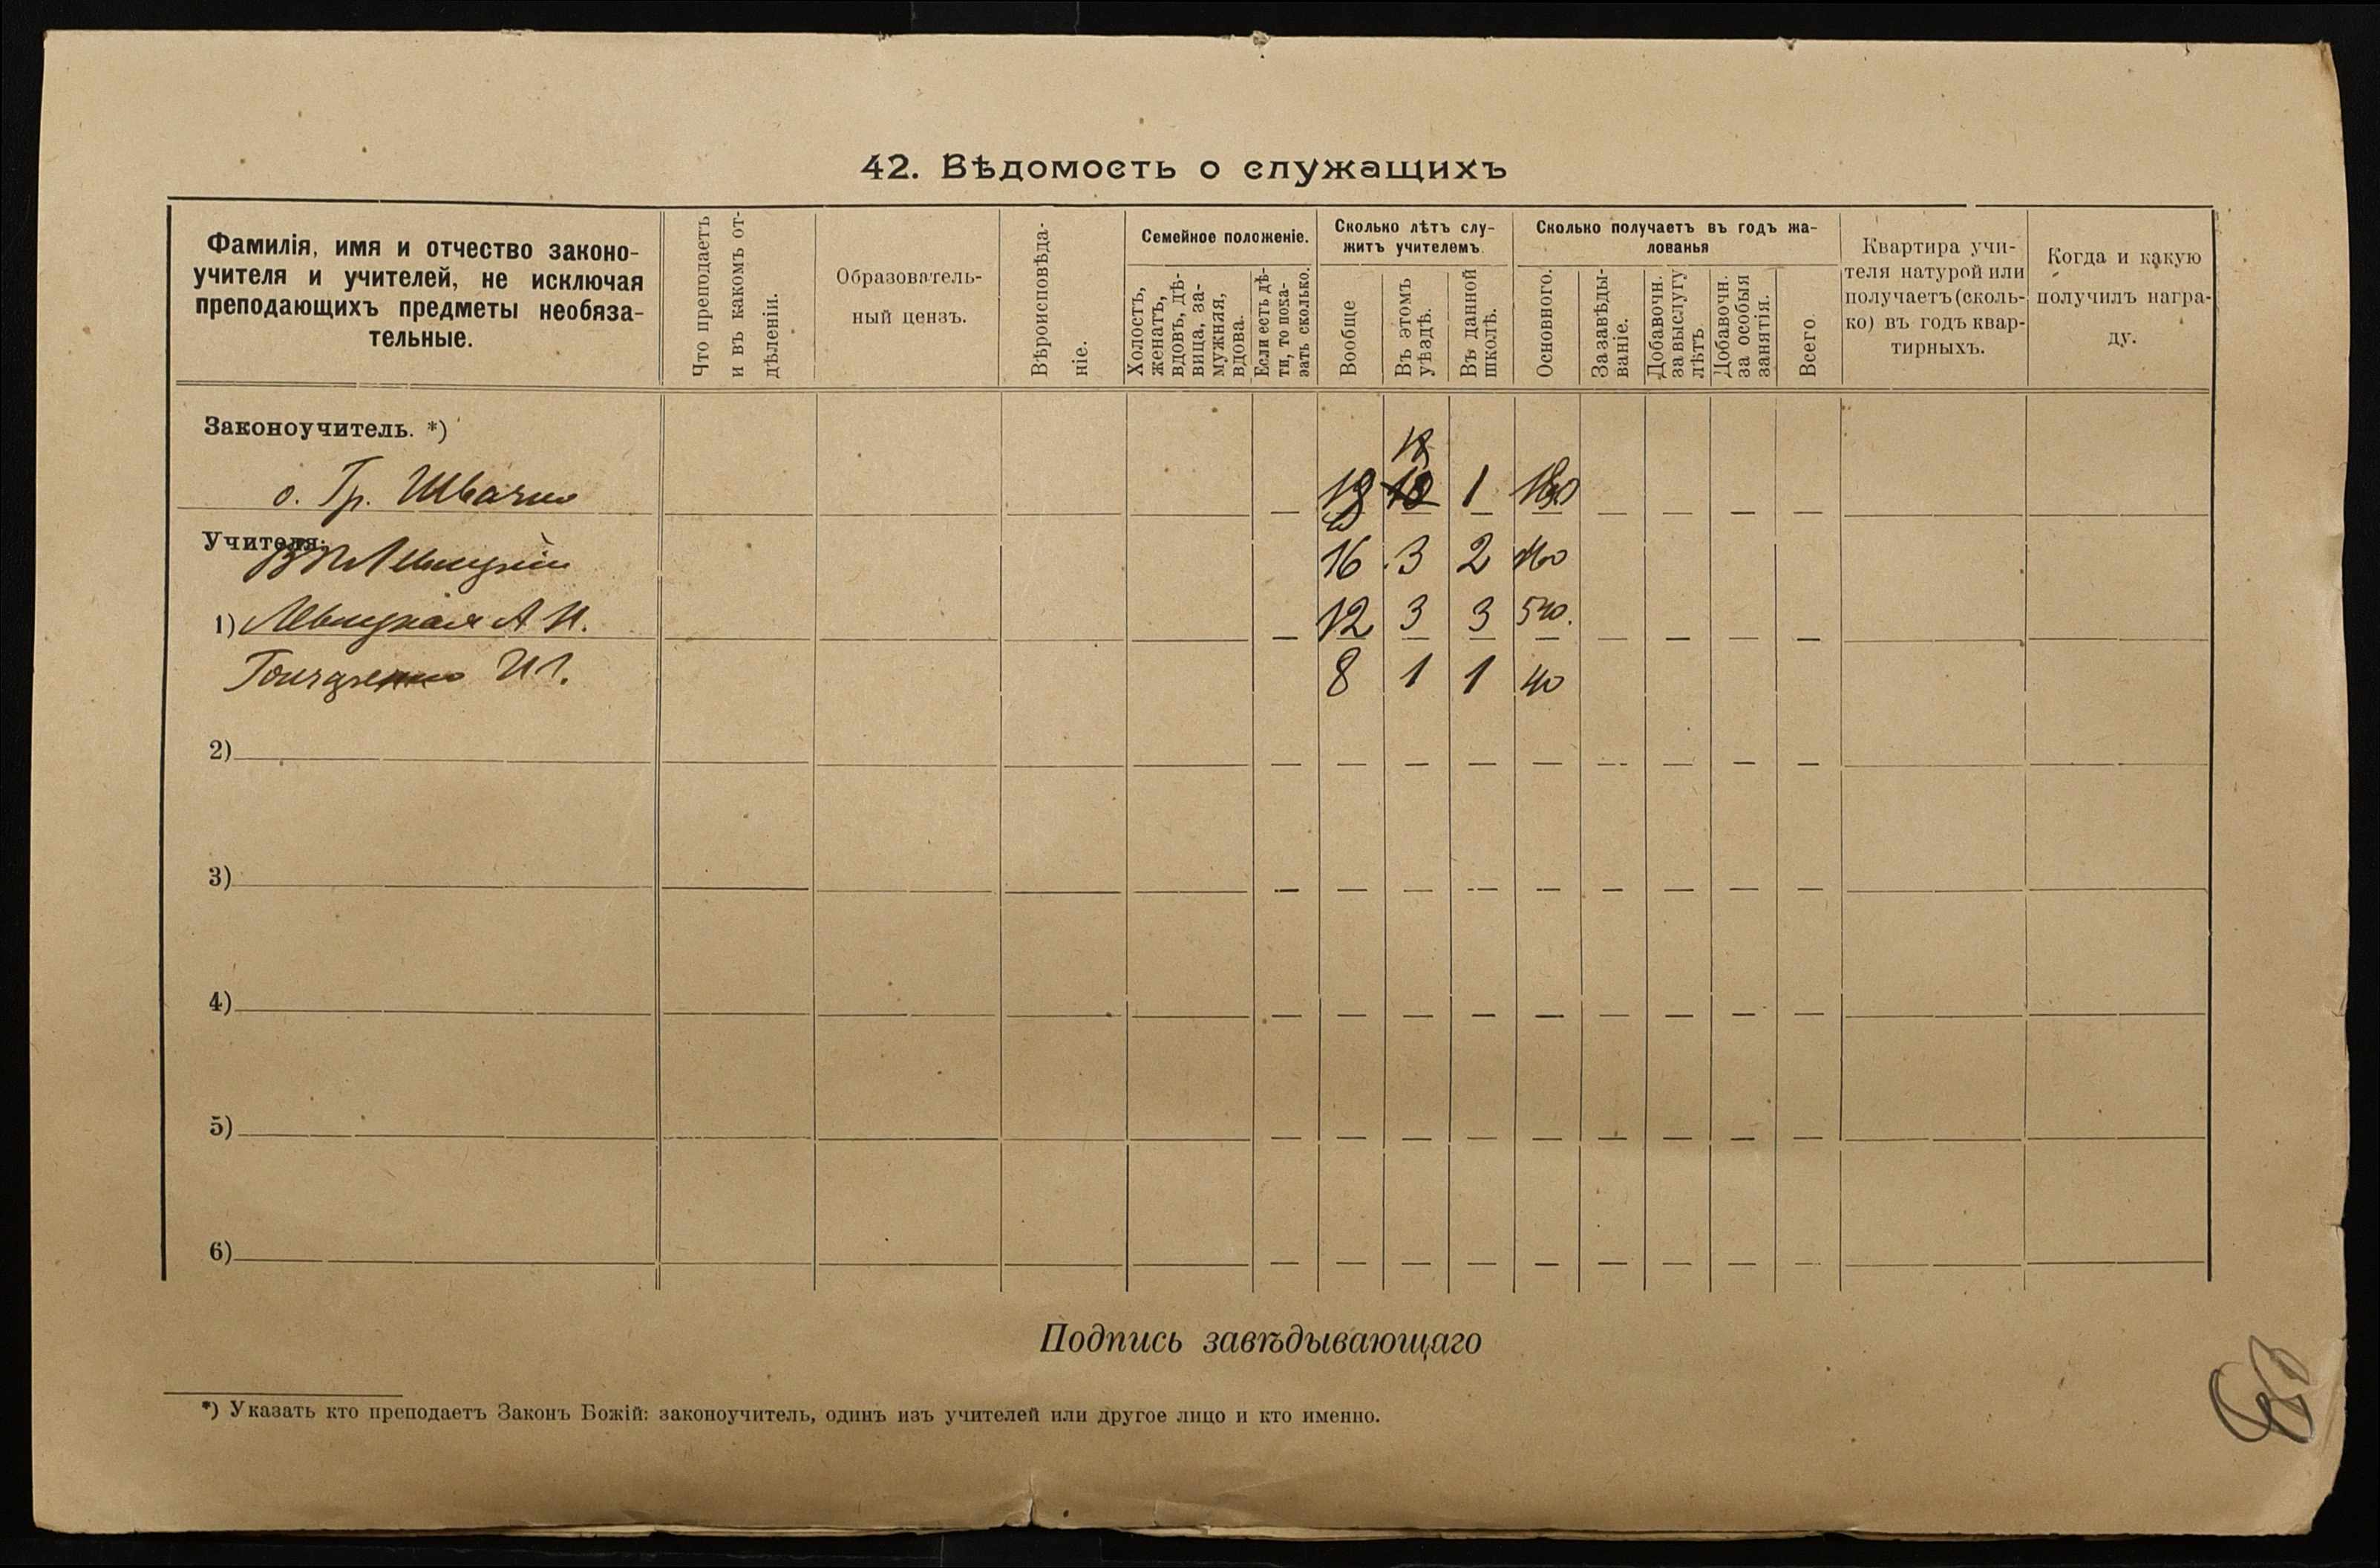 42. Вѣдомость о служащихъ
Фамилія, имя и отчество законо-
учителя и учителей, не исключая
преподающихъ предметы необяза-
тельные.
Что преподаетъ
и въ какомъ от-
дѣленіи.
Образователь-
ный цензъ.
Вѣроисповѣда-
ніе.
Семейное положеніе.
Холостъ,
женатъ,
вдовъ, дѣ-
вица, за-
мужняя,
вдова.
Если есть дѣ-
ти, то пока-
зать сколько.
Сколько лѣтъ слу-
житъ учителемъ.
Вообще
Въ этомъ
уѣздѣ.
Въ данной
школѣ.
Сколько получаетъ въ годъ жа-
лованья
Основного.
За завѣды-
ваніе.
Добавочн.
за выслугу
лѣтъ.
Добавочн.
за особыя
занятія.
Всего.
Квартира учи-
теля натурой или
получаетъ (сколь-
ко) въ годъ квар-
тирныхъ.
Когда и какую
получилъ награ-
ду.
Законоучитель. *)
о. Гр. Швачко 1
Учителя:
Левицкій 16 3 2
1) Левицкая А И. 12 3 3 540.
Гончаренко 8 1 1 40
2)
3)
4)
5)
6)
Подпись завѣдывающаго
*) Указать кто преподаетъ Законъ Божій: законоучитель, одинъ изъ учителей или другое лицо и кто именно.